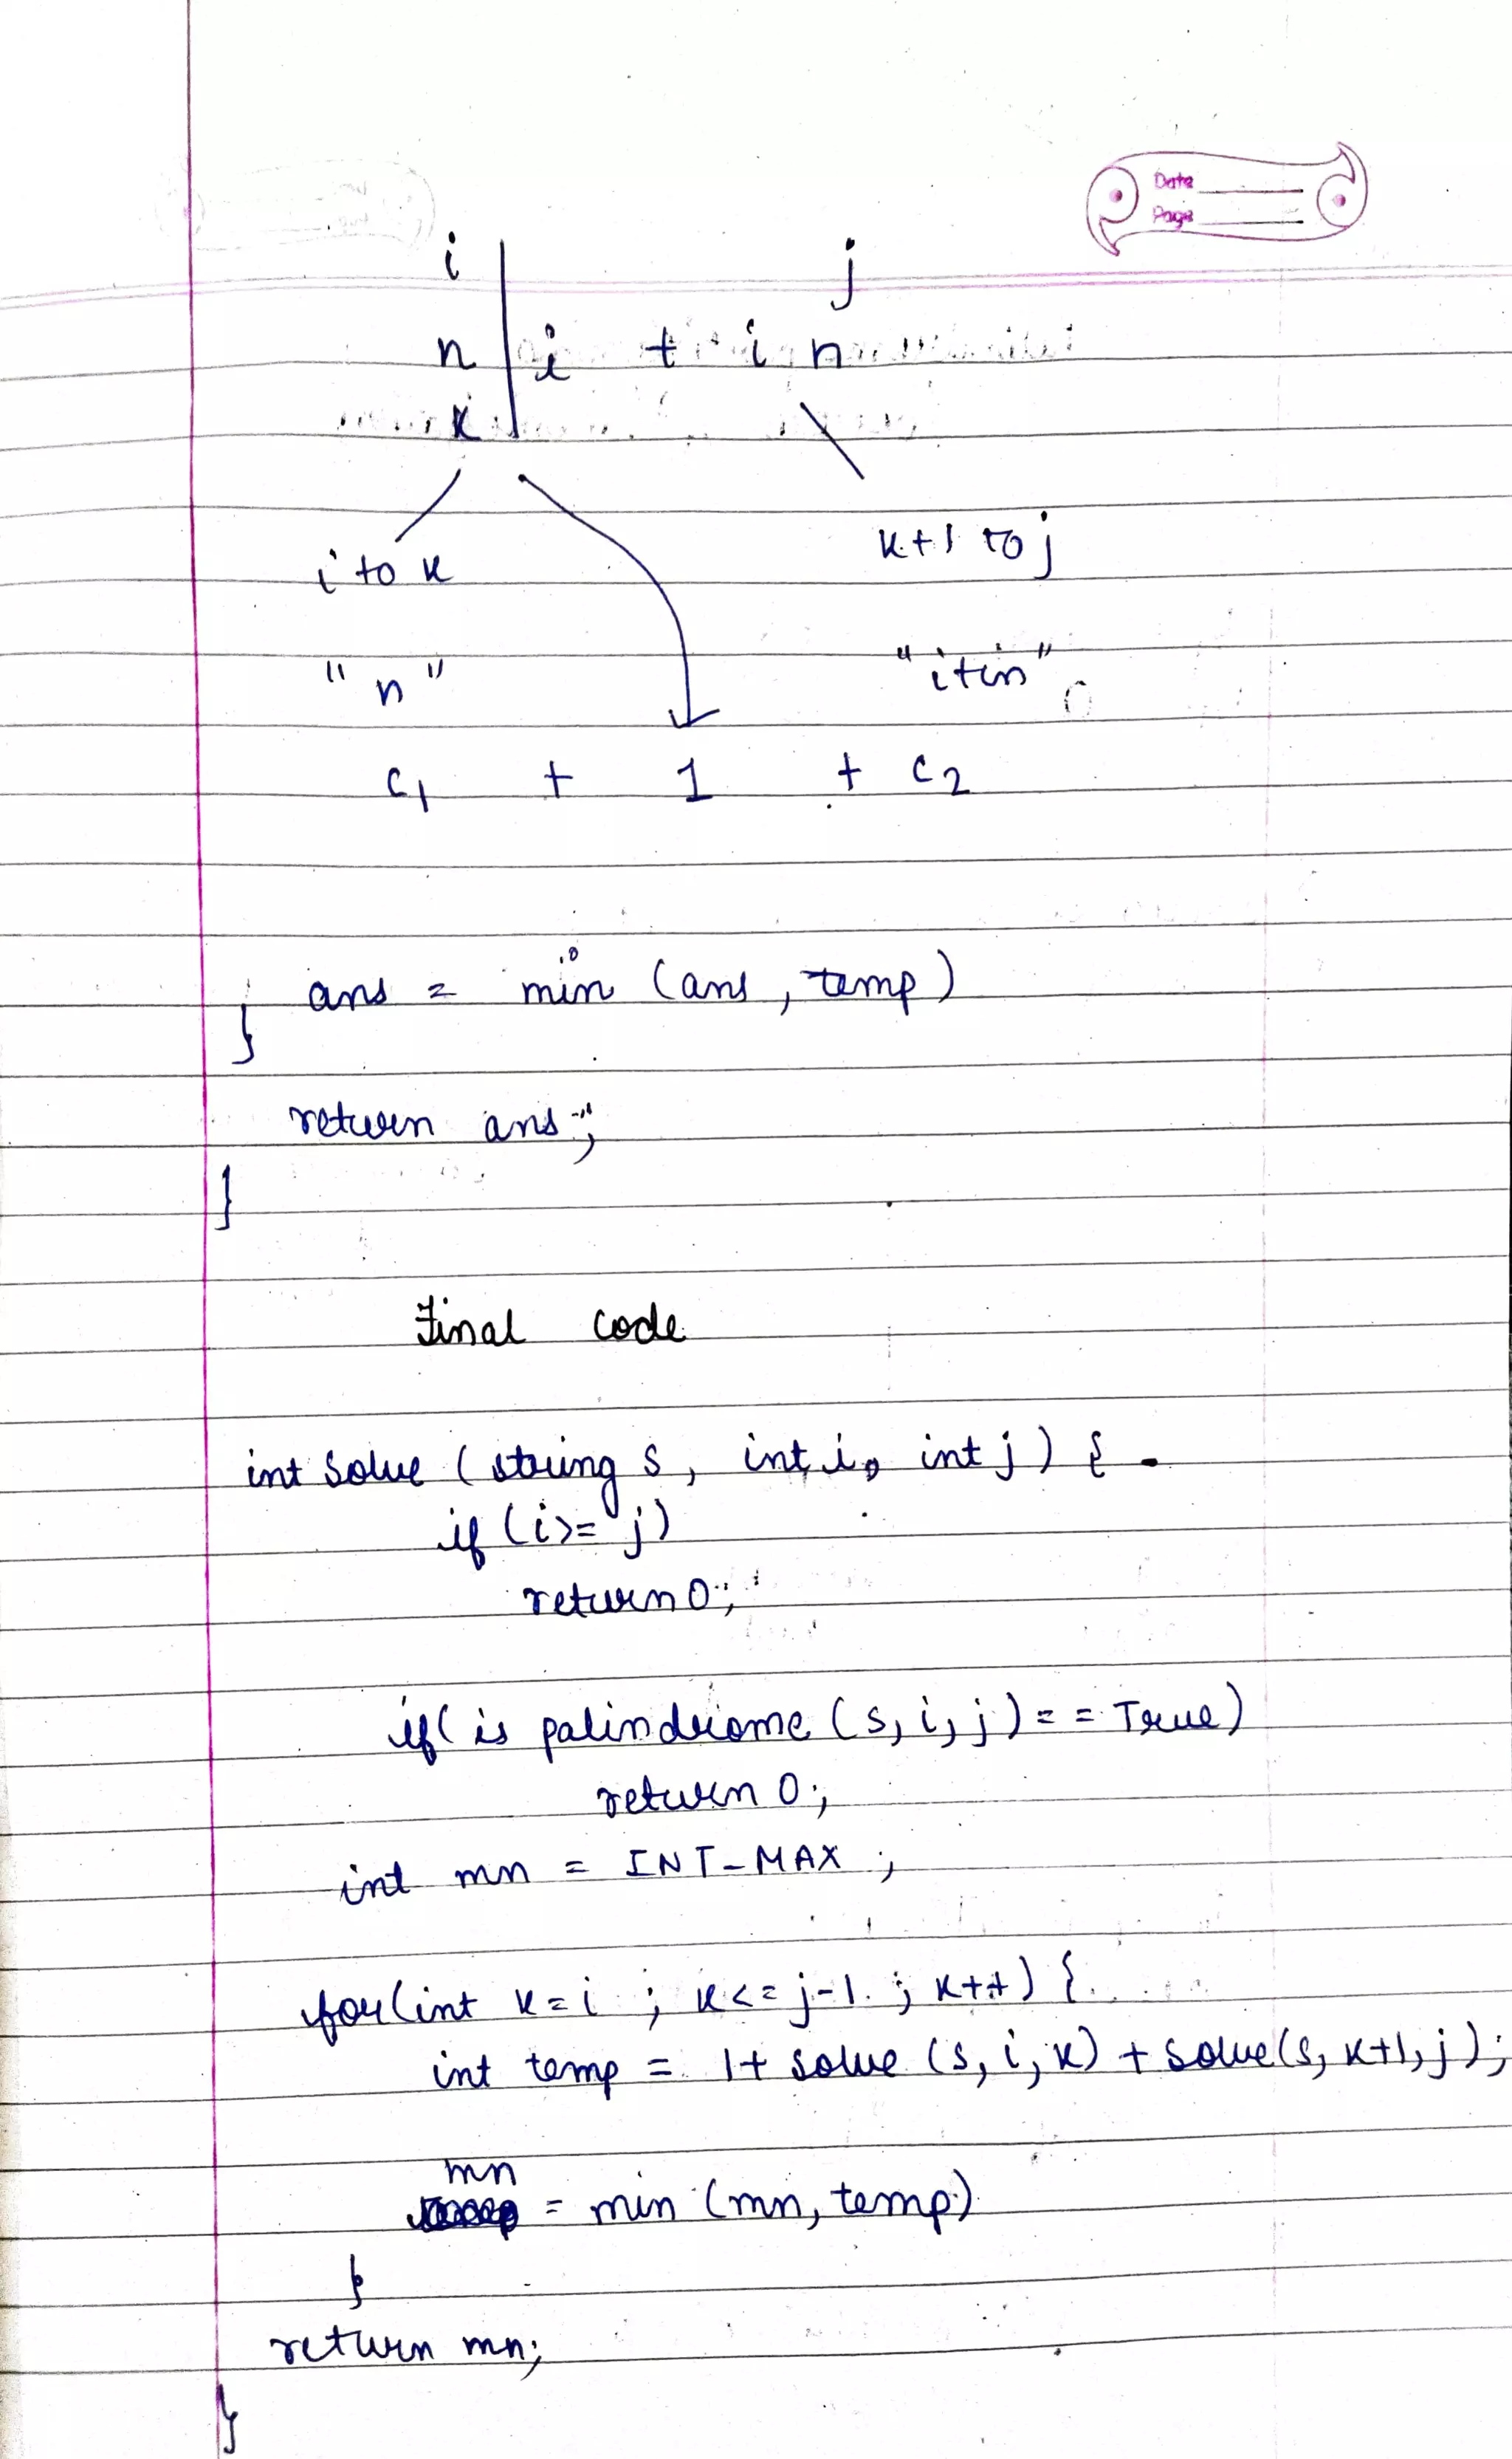 Date
Page
i j
n i t i n
k
i to k k+1 to j
"n" "itin"
c1 + 1 + c2
ans = min (ans, temp)
}
return ans;
}
Final code
int solve (string s, int i, int j) {
if (i>= j)
return 0;
if( is palindrome (s, i, j) == True)
return 0;
int mn = INT_MAX ;
for(int k=i ; k<= j-1 ; k++) {
int temp = 1+ solve (s, i, k) + solve(s, k+1, j);
mn = min (mn, temp)
}
return mn;
}